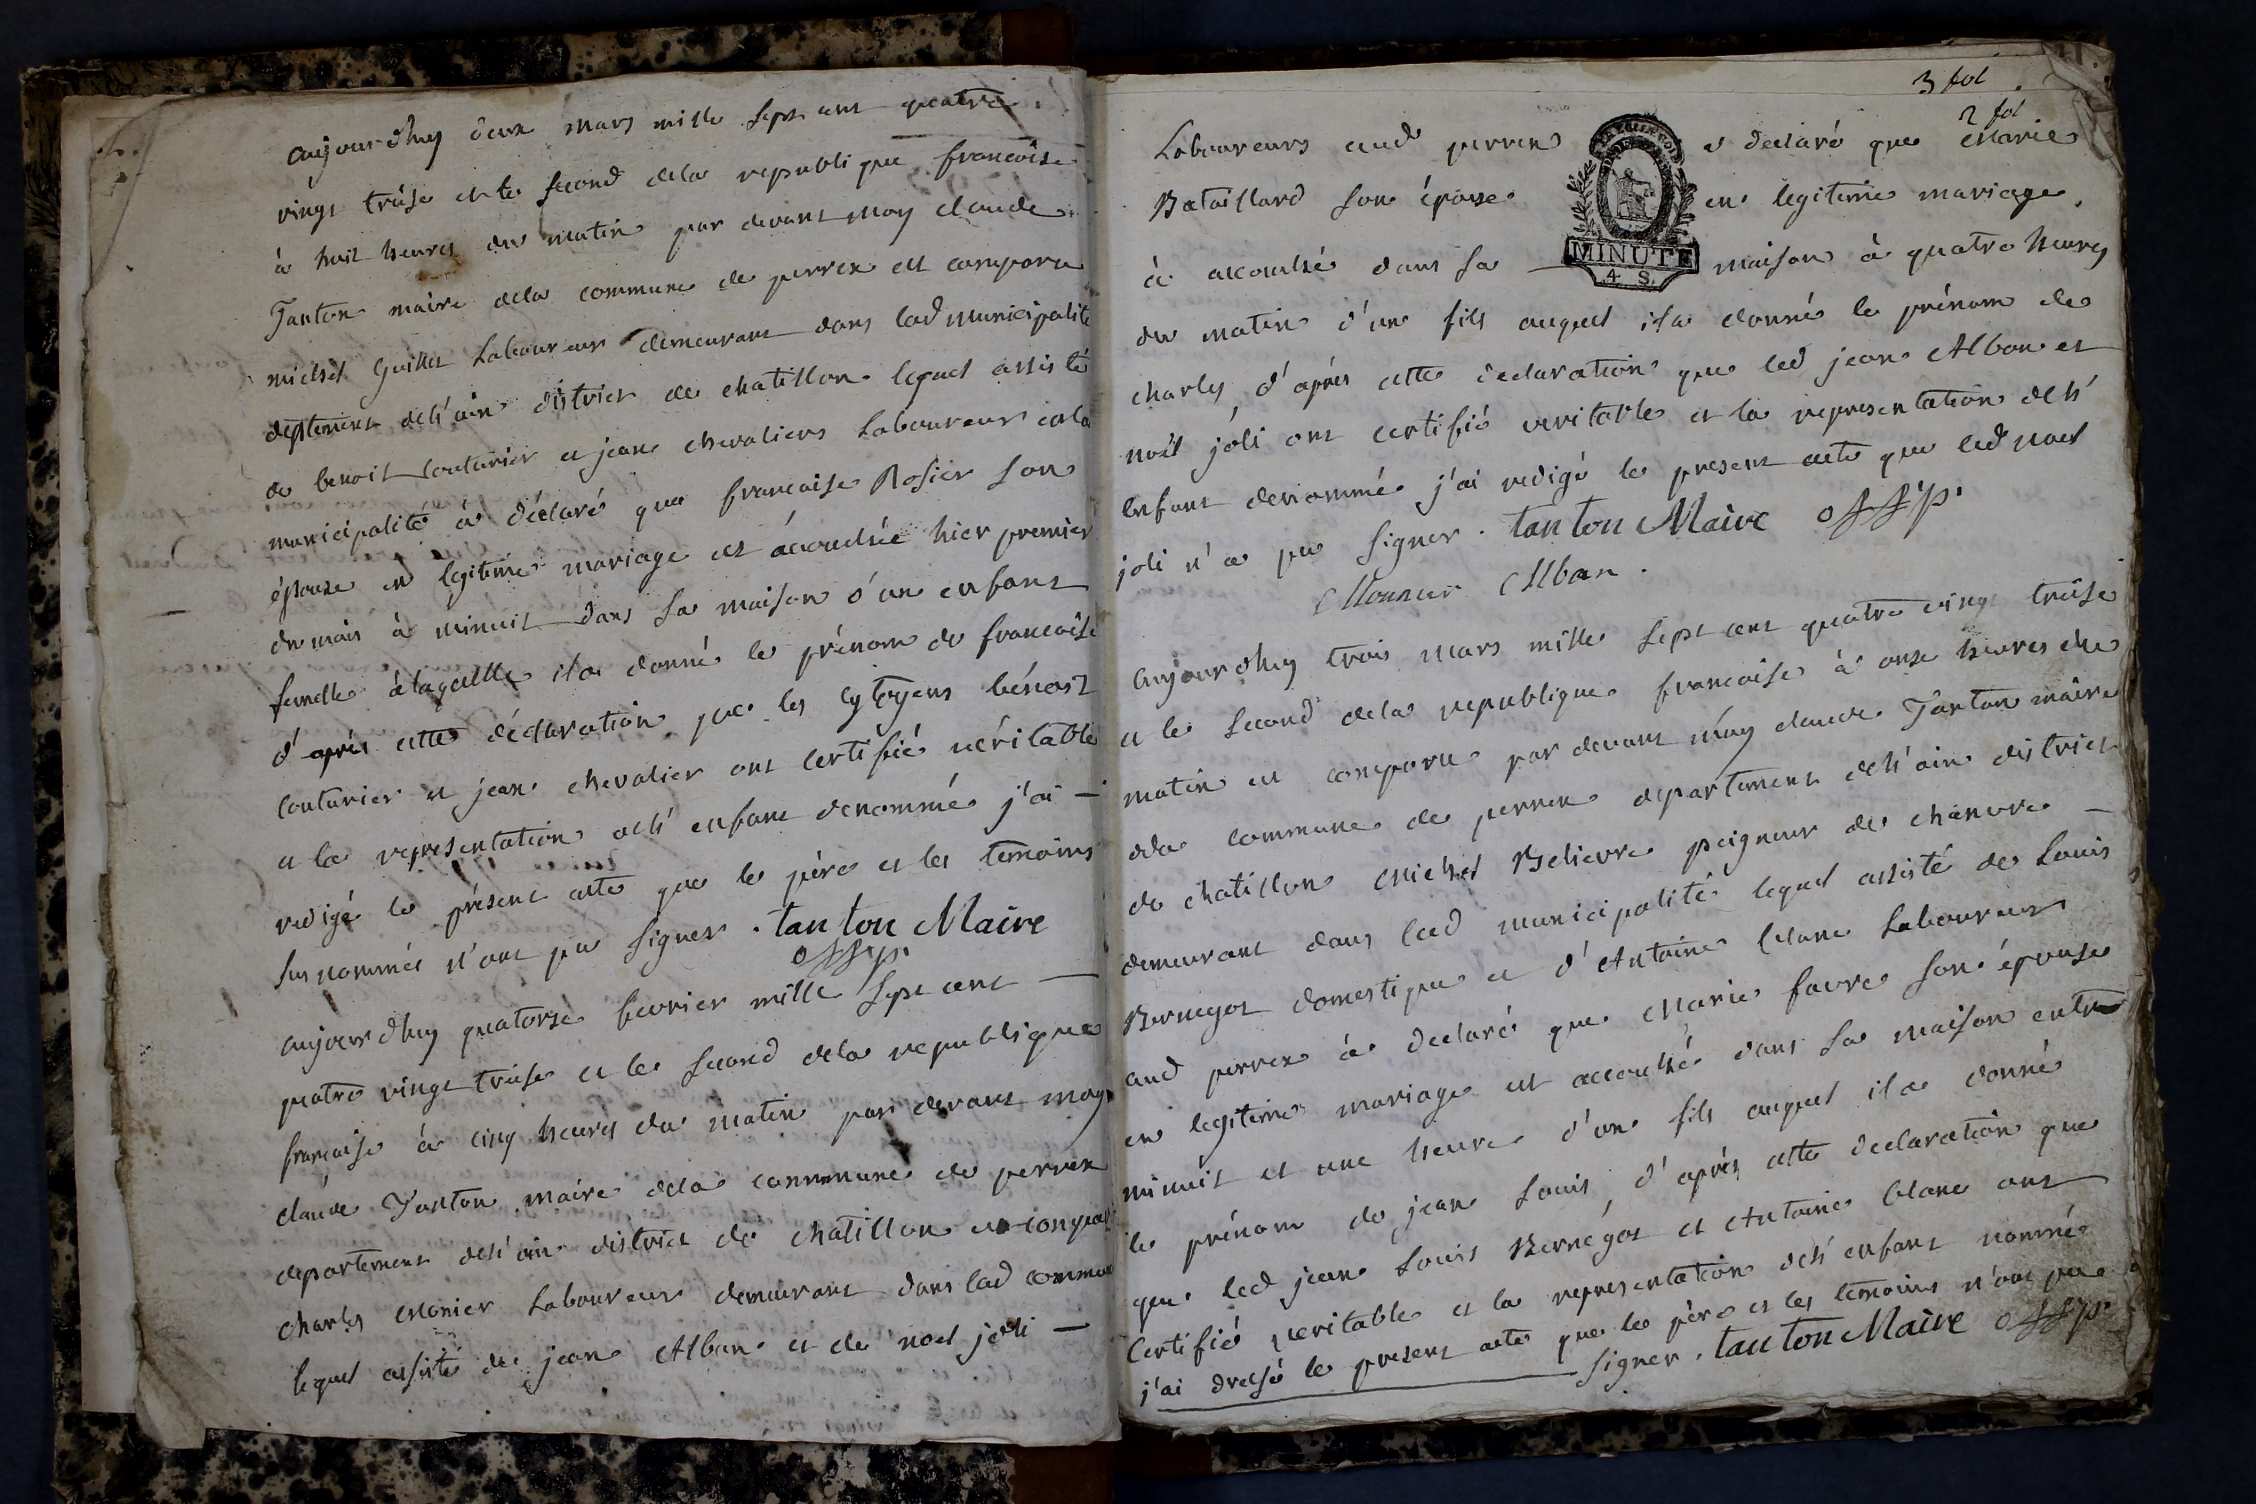 aujourdhuy deux mars mille sept cent quatre
vingt treise et le second dela republique francoise
à huit heures du matin par devant moy claude
Tanton maire dela commune de perrex est comparu
michel Guillet Laboureur demeurant dans lad municipalité
deptement del'ain district de chatillon lequel assisté
de benoit couturier et jean chevaliers Laboureurs en la
municipalité à déclaré que francoise Rosier son
épouse en legitime mariage est acouchée hier premier
du mois à minuit dans sa maison d'un enfant
femelle à laquelle il a donné le prénom de francoise
d'après cette déclaration que les cytoyens bénoit
couturier et jean chevalier ont certifié véritable
et la representation del'enfant denommé j'ai —
redigé le présent acte que le père et les temoins
sus nommés n'ont pu signer . tanton Maire
offp.
aujourdhuy quatorze fevrier mille sept cent —
quatre vingt treise et le second dela republique
francaise à cinq heures du matin par devant moy
claude Tanton maire dela commune de perrex
departement del'ain district de chatillon est comparu
charles monier Laboureur demeurant dans lad commune
lequel assisté de jean Alban et de noel joli —
3 fol
2 fol
Laboureurs aud perrex a declaré que Marie
Bataillard son épouse en legitime mariage
à accouchée dans sa — maison à quatre heures
MINUTE
4 S.
du matin d'un fils auquel il a donné le prénom de
charles, d'après cette declaration que led jean Alban et
noël joli ont certifié veritable et la representation del'
enfant denommé j'ai redigé le present acte que led noel
joli n'a pu signer . tanton Maire offp.
Mounier Alban .
aujourdhuy trois mars mille sept cent quatre vingt treise
et le second dela republique francoise à onze heures du
matin est comparu par devant moy claude Tanton maire
dela commune de perrex departement del'ain district
de chatillon Michel Believre peigneur de chanvre —
demeurant dans lad municipalité lequel assisté de Louis
Bernegot domestique et d'Antoine blanc Laboureurs
aud perrex à declaré que Marie favre son épouse
en legitime mariage est accouchée dans sa maison entre
minuit et une heure d'un fils auquel il a donné
le prénom de jean Louis, d'après cette declaration que
que led jean Louis Bernégot et Antoine blanc ont
certifié veritable et la representation del'enfant nommé
j'ai dressé le present acte que le père et les temoins n'ont pu
signer . tanton Maire offp.